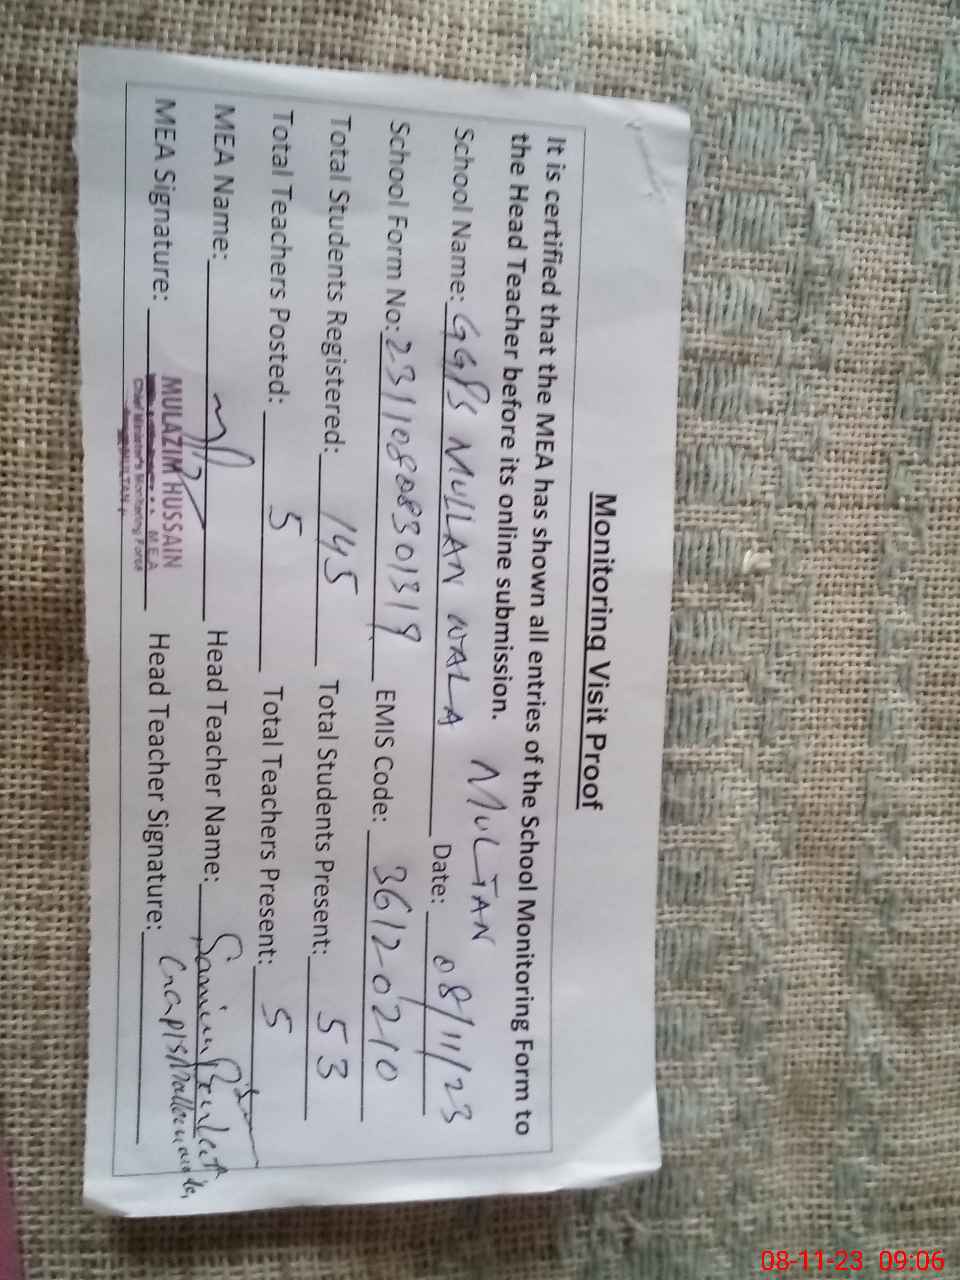 Monitoring Visit Proof
It is certified that the MEA has shown all entries of the School Monitoring Form to
the Head Teacher before its online submission.
MULTAN
School Name: GGPS MULLAN WALA Date: 08/11/23
School Form No: 23110808301319 EMIS Code: 36120210
Total Students Registered: 145 Total Students Present: 53
Total Teachers Posted: 5 Total Teachers Present: 5
MEA Name: Head Teacher Name:
MEA Signature: Head Teacher Signature:
MULAZIM HUSSAIN
M E A
Chief Minister's Monitoring Force
MULTAN
08-11-23 09:06